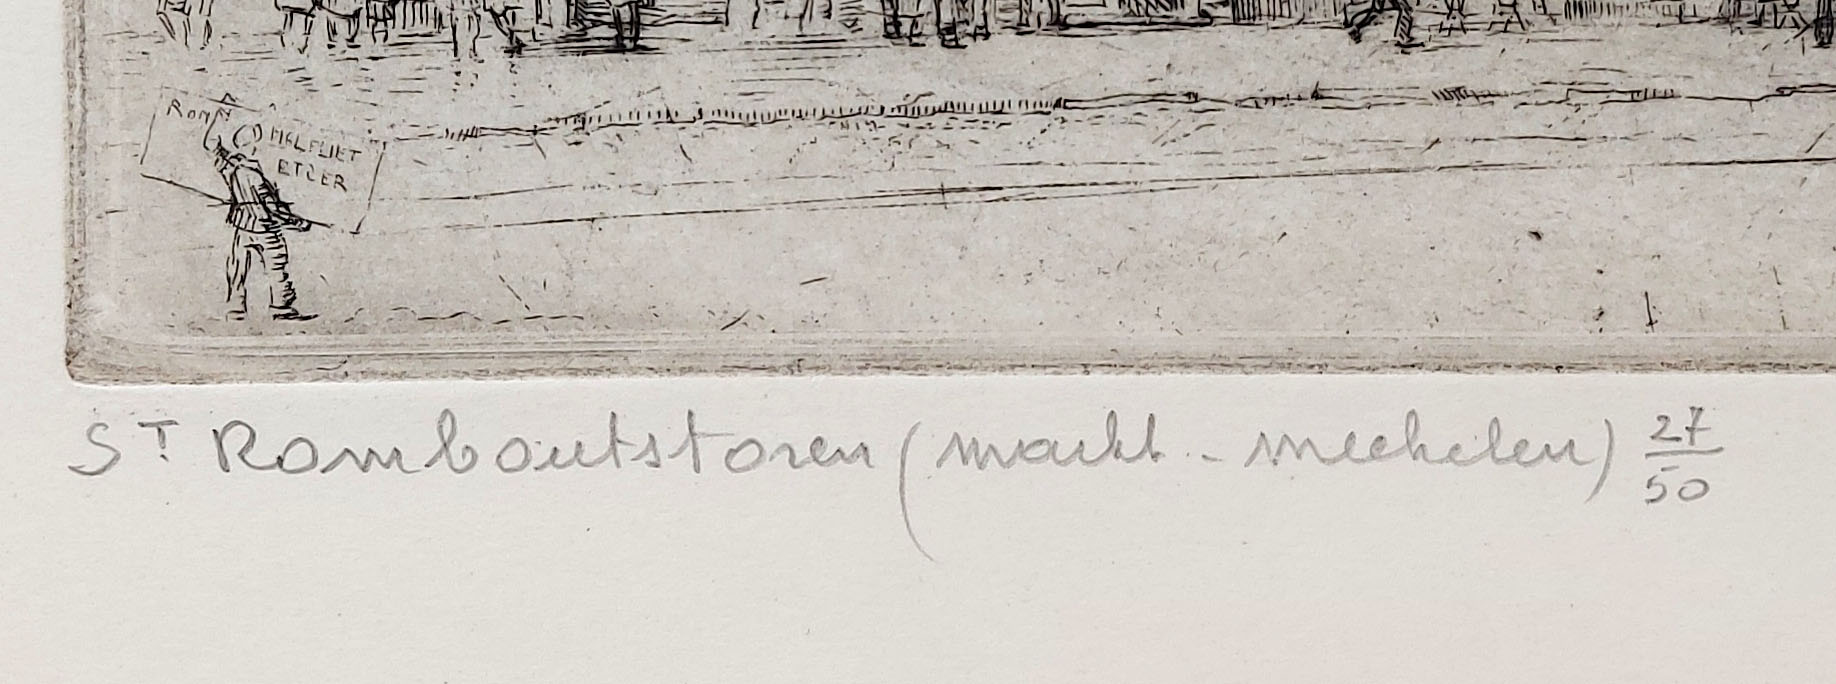 ROMN MALFLIET
ETSER
ST Romboutstoren (markt - mechelen) 27/50